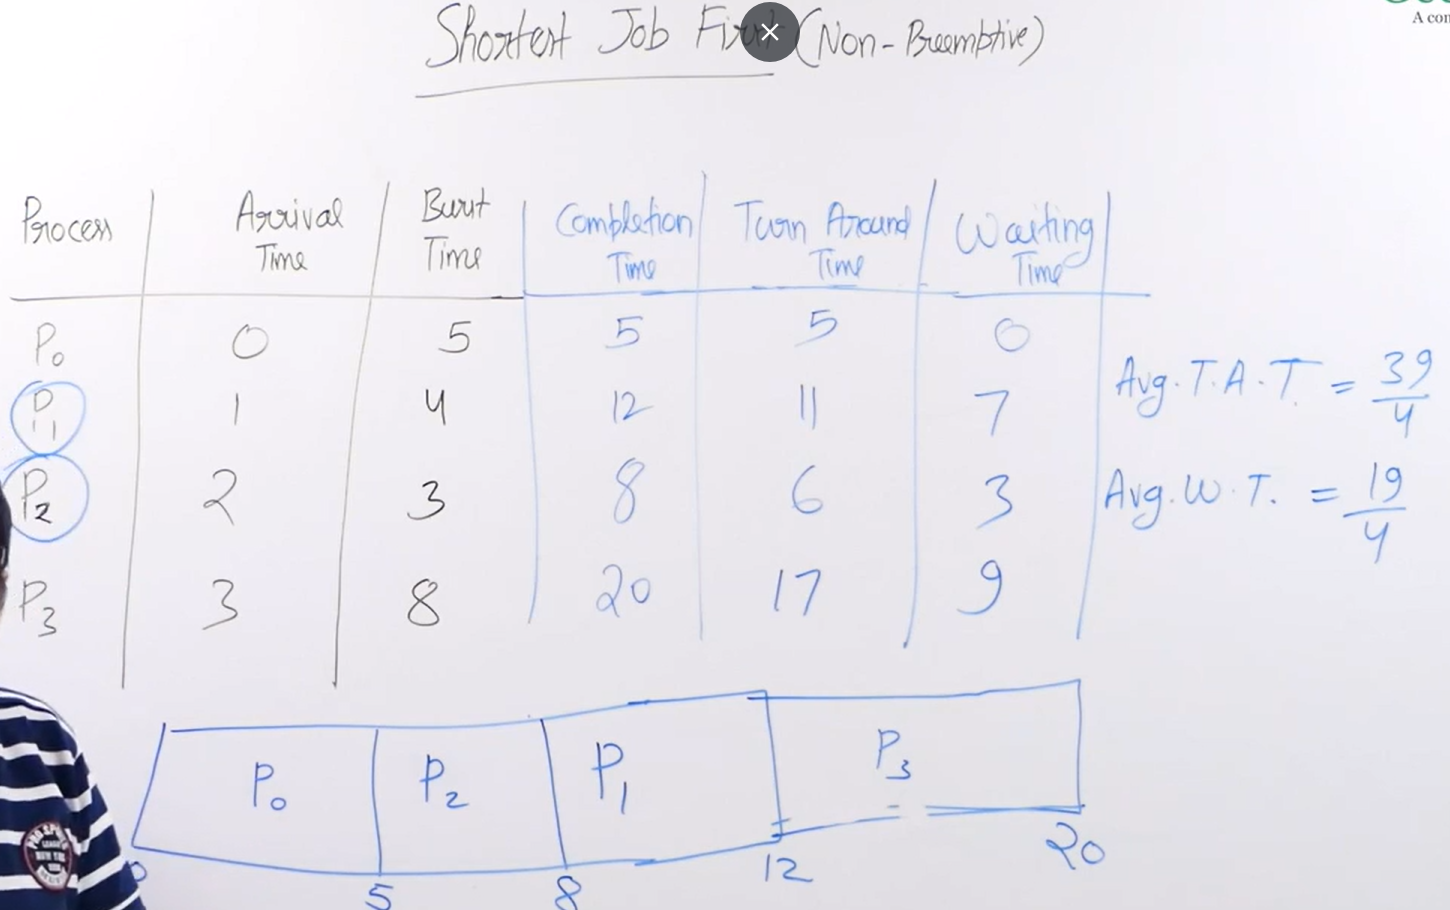 Shortest Job First (Non-Preemptive)
A com
Process Arrival Time Burst Time Completion Time Turn Around Time Waiting Time
P0 0 5 5 5 0
P1 1 4 12 11 7
P2 2 3 8 6 3
P3 3 8 20 17 9
Avg. T.A.T. = 39/4
Avg. W.T. = 19/4
P0 P2 P1 P3
0 5 8 12 20